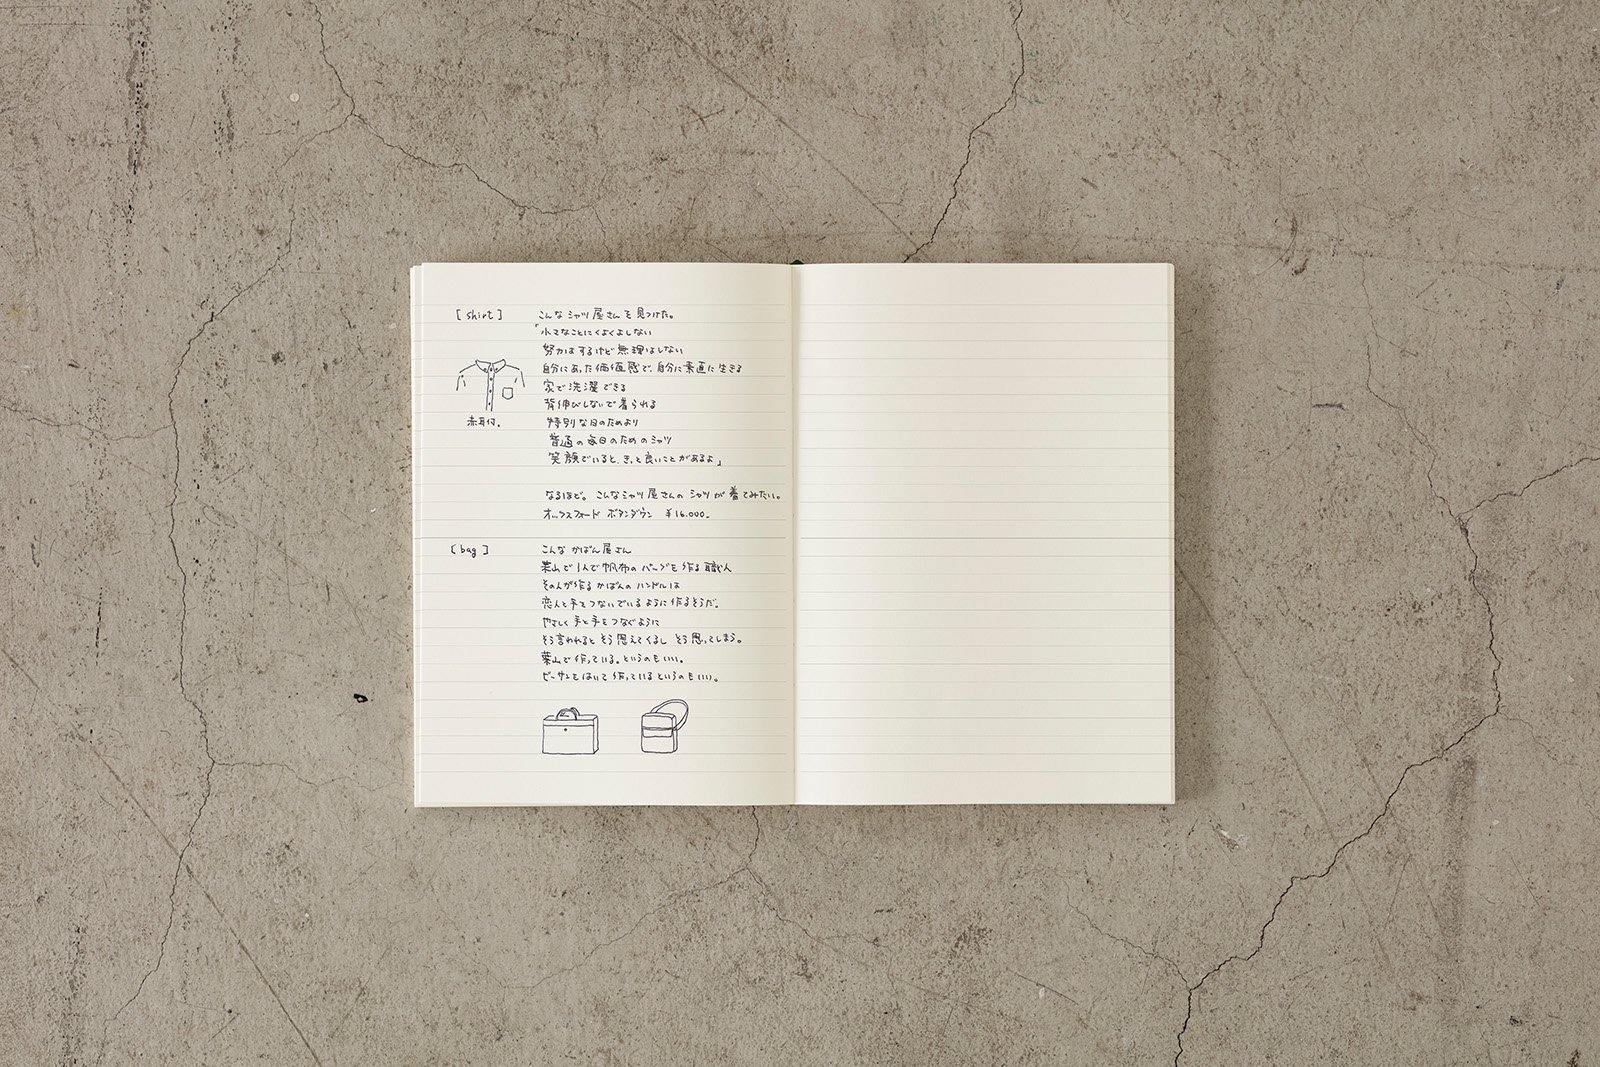 [shirt]
こんなシャツ屋さんを見つけた。
「小さなことにくよくよしない
努力はするけど無理はしない
自分にあった価値感で、自分に素直に生きる
家で洗濯できる
背伸びしないで着られる
特別な日のためより
普通の毎日のためのシャツ
笑顔でいると、きっと良いことがあるよ」
赤耳付。
なるほど。こんなシャツ屋さんのシャツが着てみたい。
オックスフォード ボタンダウン ¥16.000.
[bag]
こんなかばん屋さん
葉山で1人で帆布のバッグを作る職人
その人が作るかばんのハンドルは
恋人と手をつないでいるように作るそうだ。
やさしく手と手をつなぐように
そう言われるとそう思えてくるし そう思ってしまう。
葉山で作っている。というのもいい。
ビーサンをはいて作っているというのもいい。